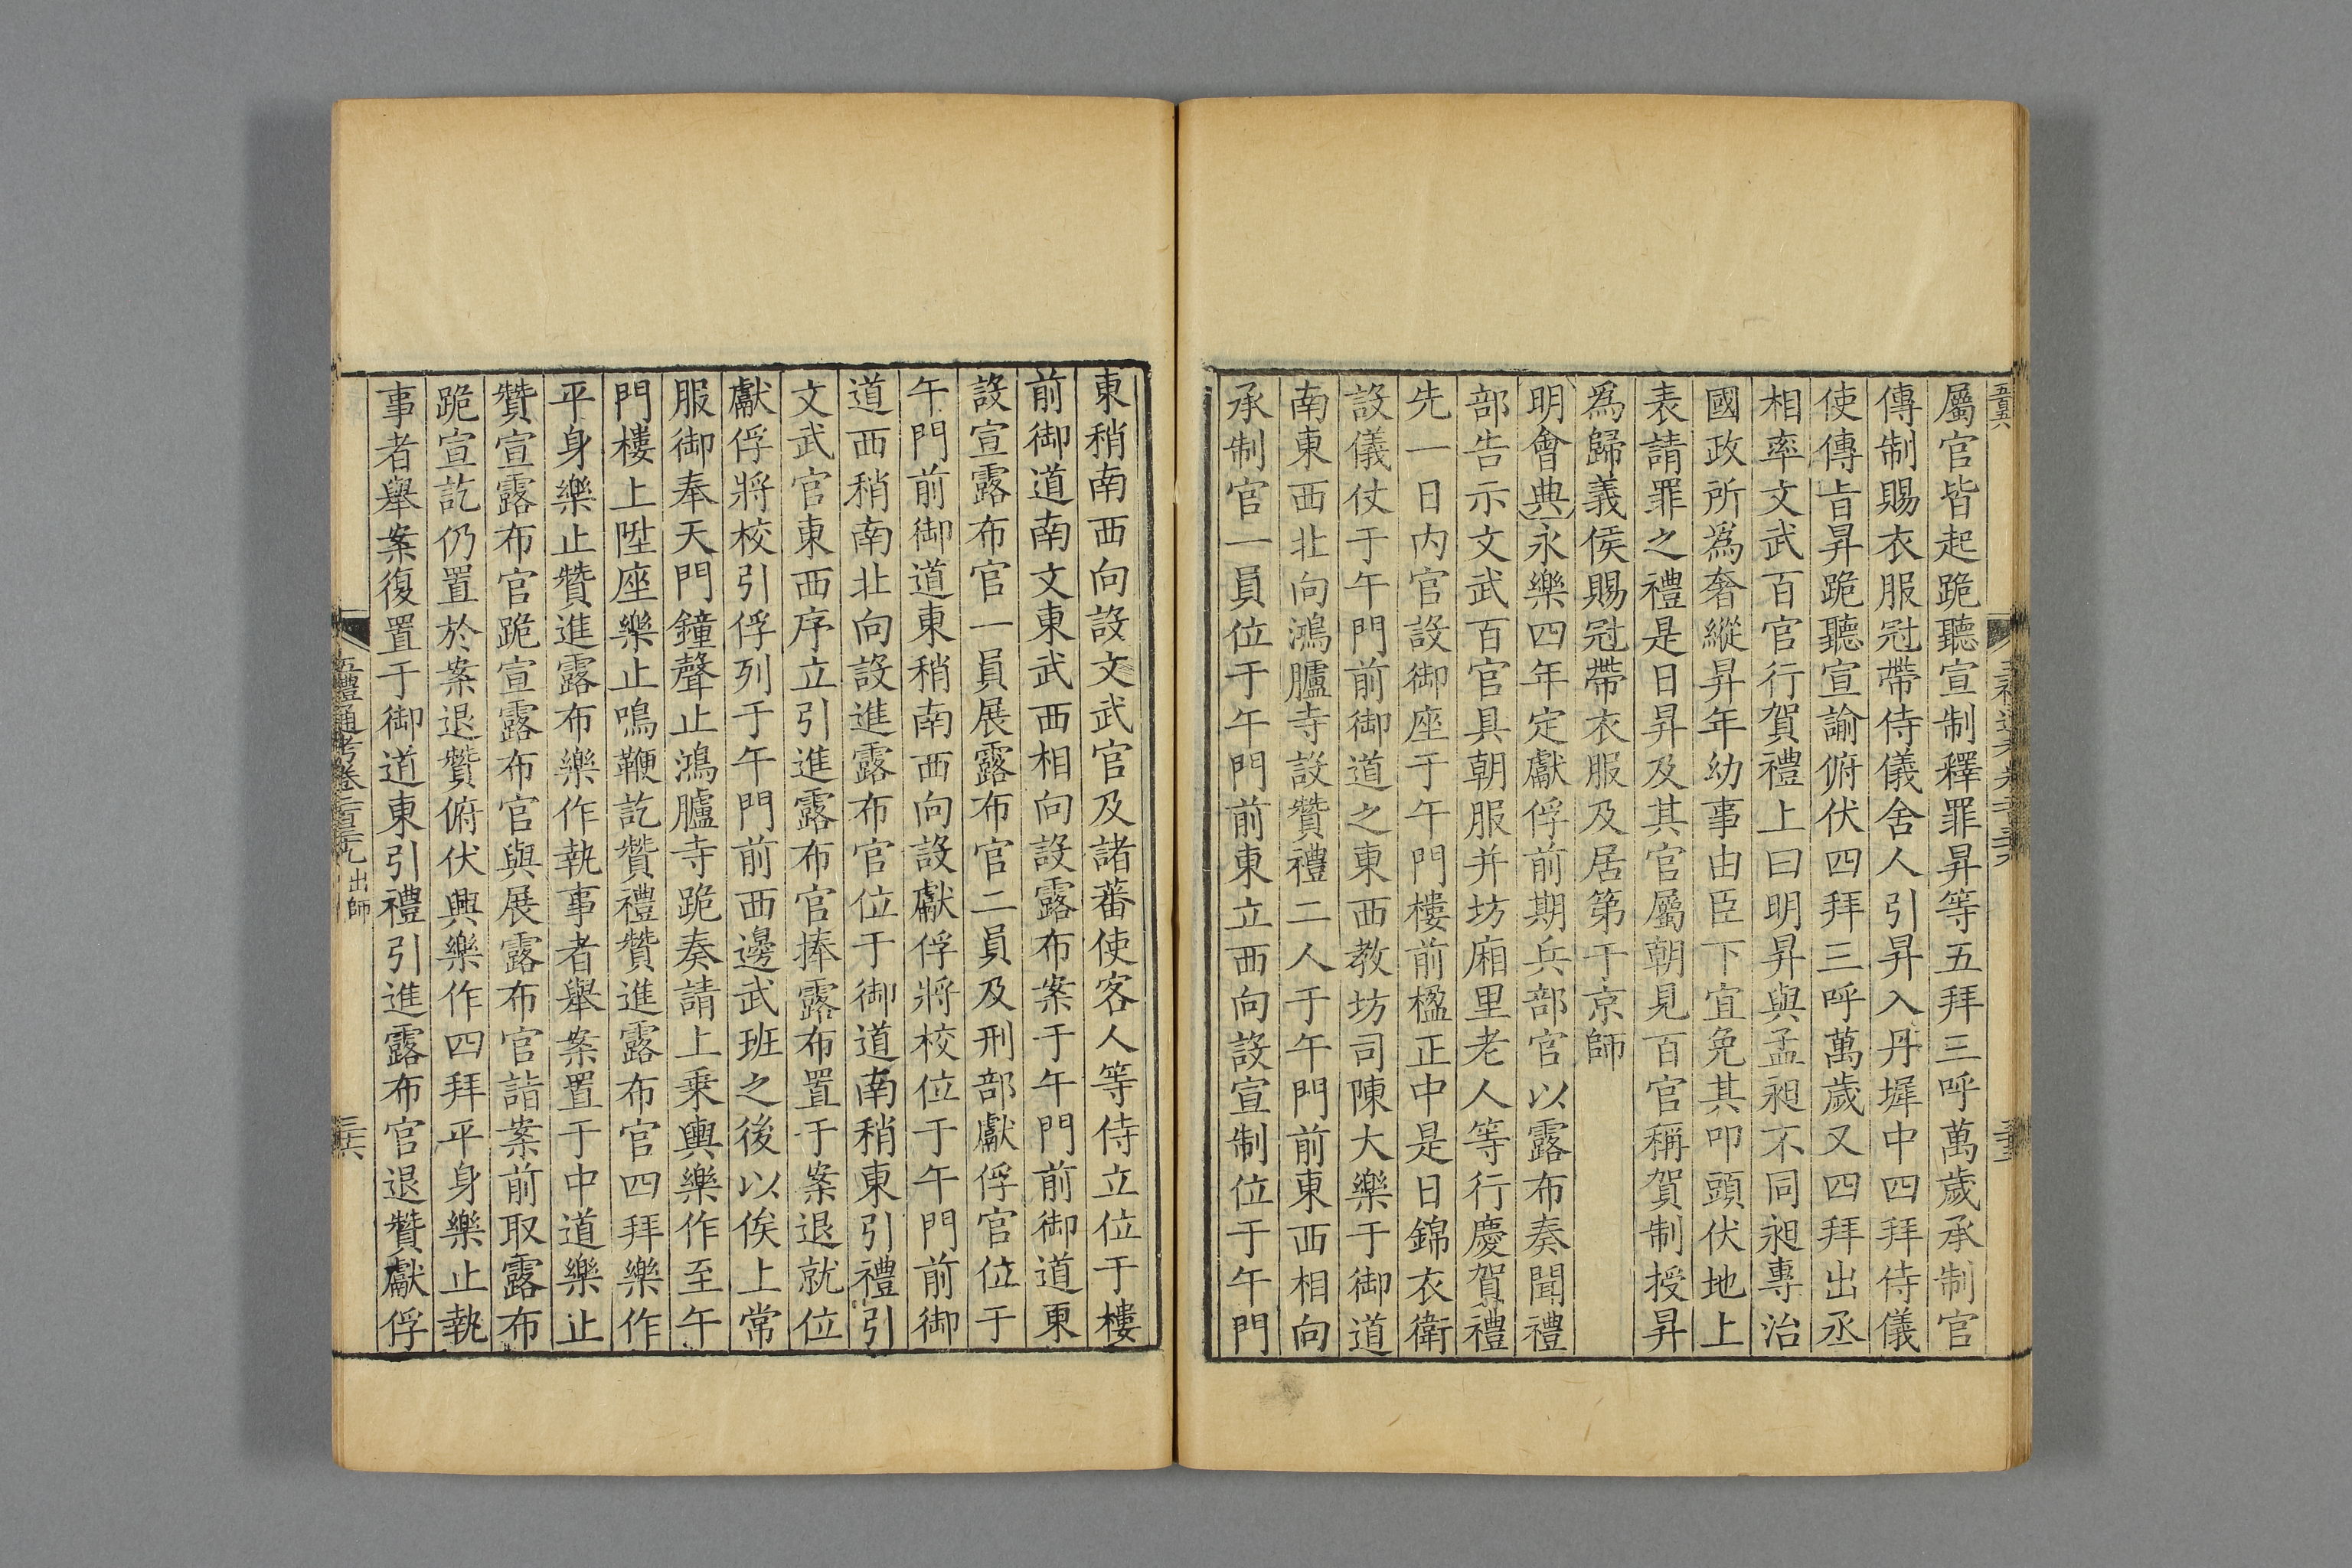 屬官皆起跪聽宣制釋罪昇等五拜三呼萬歲承制官
傳制賜衣服冠帶侍儀舍人引昇入丹墀中四拜侍儀
使傳旨昇跪聽宣諭俯伏四拜三呼萬歲又四拜出丞
相率文武百官行賀禮上曰明昇與孟昶不同昶專治
國政所爲奢縱昇年幼事由臣下宜免其叩頭伏地上
表請罪之禮是日昇及其官屬朝見百官稱賀制授昇
爲歸義侯賜冠帶衣服及居第于京師
明會典永樂四年定獻俘前期兵部官以露布奏聞禮
部告示文武百官具朝服并坊廂里老人等行慶賀禮
先一日內官設御座于午門樓前楹正中是日錦衣衛
設儀仗于午門前御道之東西教坊司陳大樂于御道
南東西北向鴻臚寺設贊禮二人于午門前東西相向
承制官一員位于午門前東立西向設宣制位于午門
東稍南西向設文武官及諸蕃使客人等侍立位于樓
前御道南文東武西相向設露布案于午門前御道東
設宣露布官一員展露布官二員及刑部獻俘官位于
午門前御道東稍南西向設獻俘將校位于午門前御
道西稍南北向設進露布官位于御道南稍東引禮引
文武官東西序立引進露布官捧露布置于案退就位
獻俘將校引俘列于午門前西邊武班之後以俟上常
服御奉天門鐘聲止鴻臚寺跪奏請上乗輿樂作至午
門樓上陞座樂止鳴鞭訖贊禮贊進露布官四拜樂作
平身樂止贊進露布樂作執事者舉案置于中道樂止
贊宣露布官跪宣露布官與展露布官詣案前取露布
跪宣訖仍置於案退贊俯伏興樂作四拜平身樂止執
事者舉案復置于御道東引禮引進露布官退贊獻俘
五禮通考卷二百三十九 出師